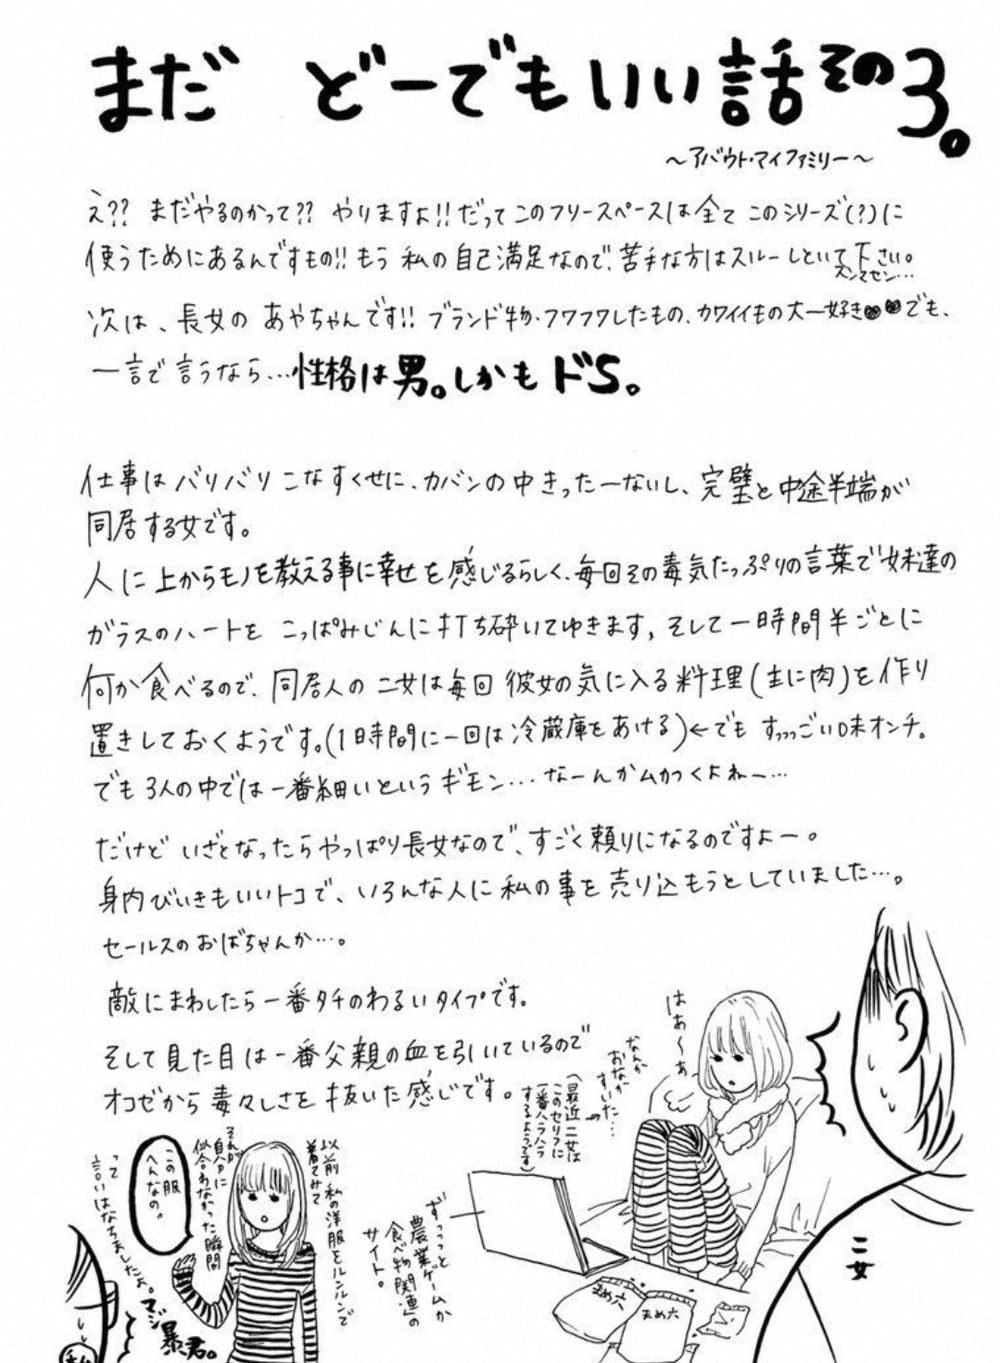 まだ どーでもいい話その3。
～アバウト・マイファミリー～
え?? まだやるのかって?? やりますよ!! だってこのフリースペースは全てこのシリーズ(?)に
使うためにあるんですもの!! もう私の自己満足なので、苦手な方はスルーしといて下さい。
スンマセン…
次は、長女の あやちゃんです!! ブランド物・フワフワしたもの、カワイイもの大一好き♥♥でも、
一言で言うなら…性格は男。しかもドS。
仕事はバリバリこなすくせに、カバンの中きったーないし、完璧と中途半端が
同居する女です。
人に上からモノを教える事に幸せを感じるらしく、毎回その毒気たっぷりの言葉で妹達の
ガラスのハートを こっぱみじんに打ち砕いてゆきます。そして一時間半ごとに
何か食べるので、同居人の二女は毎回彼女の気に入る料理(主に肉)を作り
置きしておくようです。(1時間に一回は冷蔵庫をあける)←でも すっっっごい味オンチ。
でも3人の中では一番細いというギモン… なーんかムカつくよねー…
だけど いざとなったらやっぱり長女なので、すごく頼りになるのですよー。
身内びいきもいいトコで、いろんな人に私の事を売り込もうとしていました…。
セールスのおばちゃんか…。
敵にまわしたら一番タチのわるいタイプです。
そして見た目は一番父親の血を引いているので
オコゼから毒々しさを抜いた感じです。
はぁ〜ぁ
なんか
おなか
すいた…
(最近二女は
このセリフに
一番ハラハラ
するようです)
ずっっっと
農業ゲームか
食べ物関連の
サイト。
まめ六
まめ六
二女
以前私の洋服をルンルンで
着てみて
それが
自分に
似合わなかった瞬間
この服
へんなの。
って
言いはなちましたよ。マジ
暴君。
私